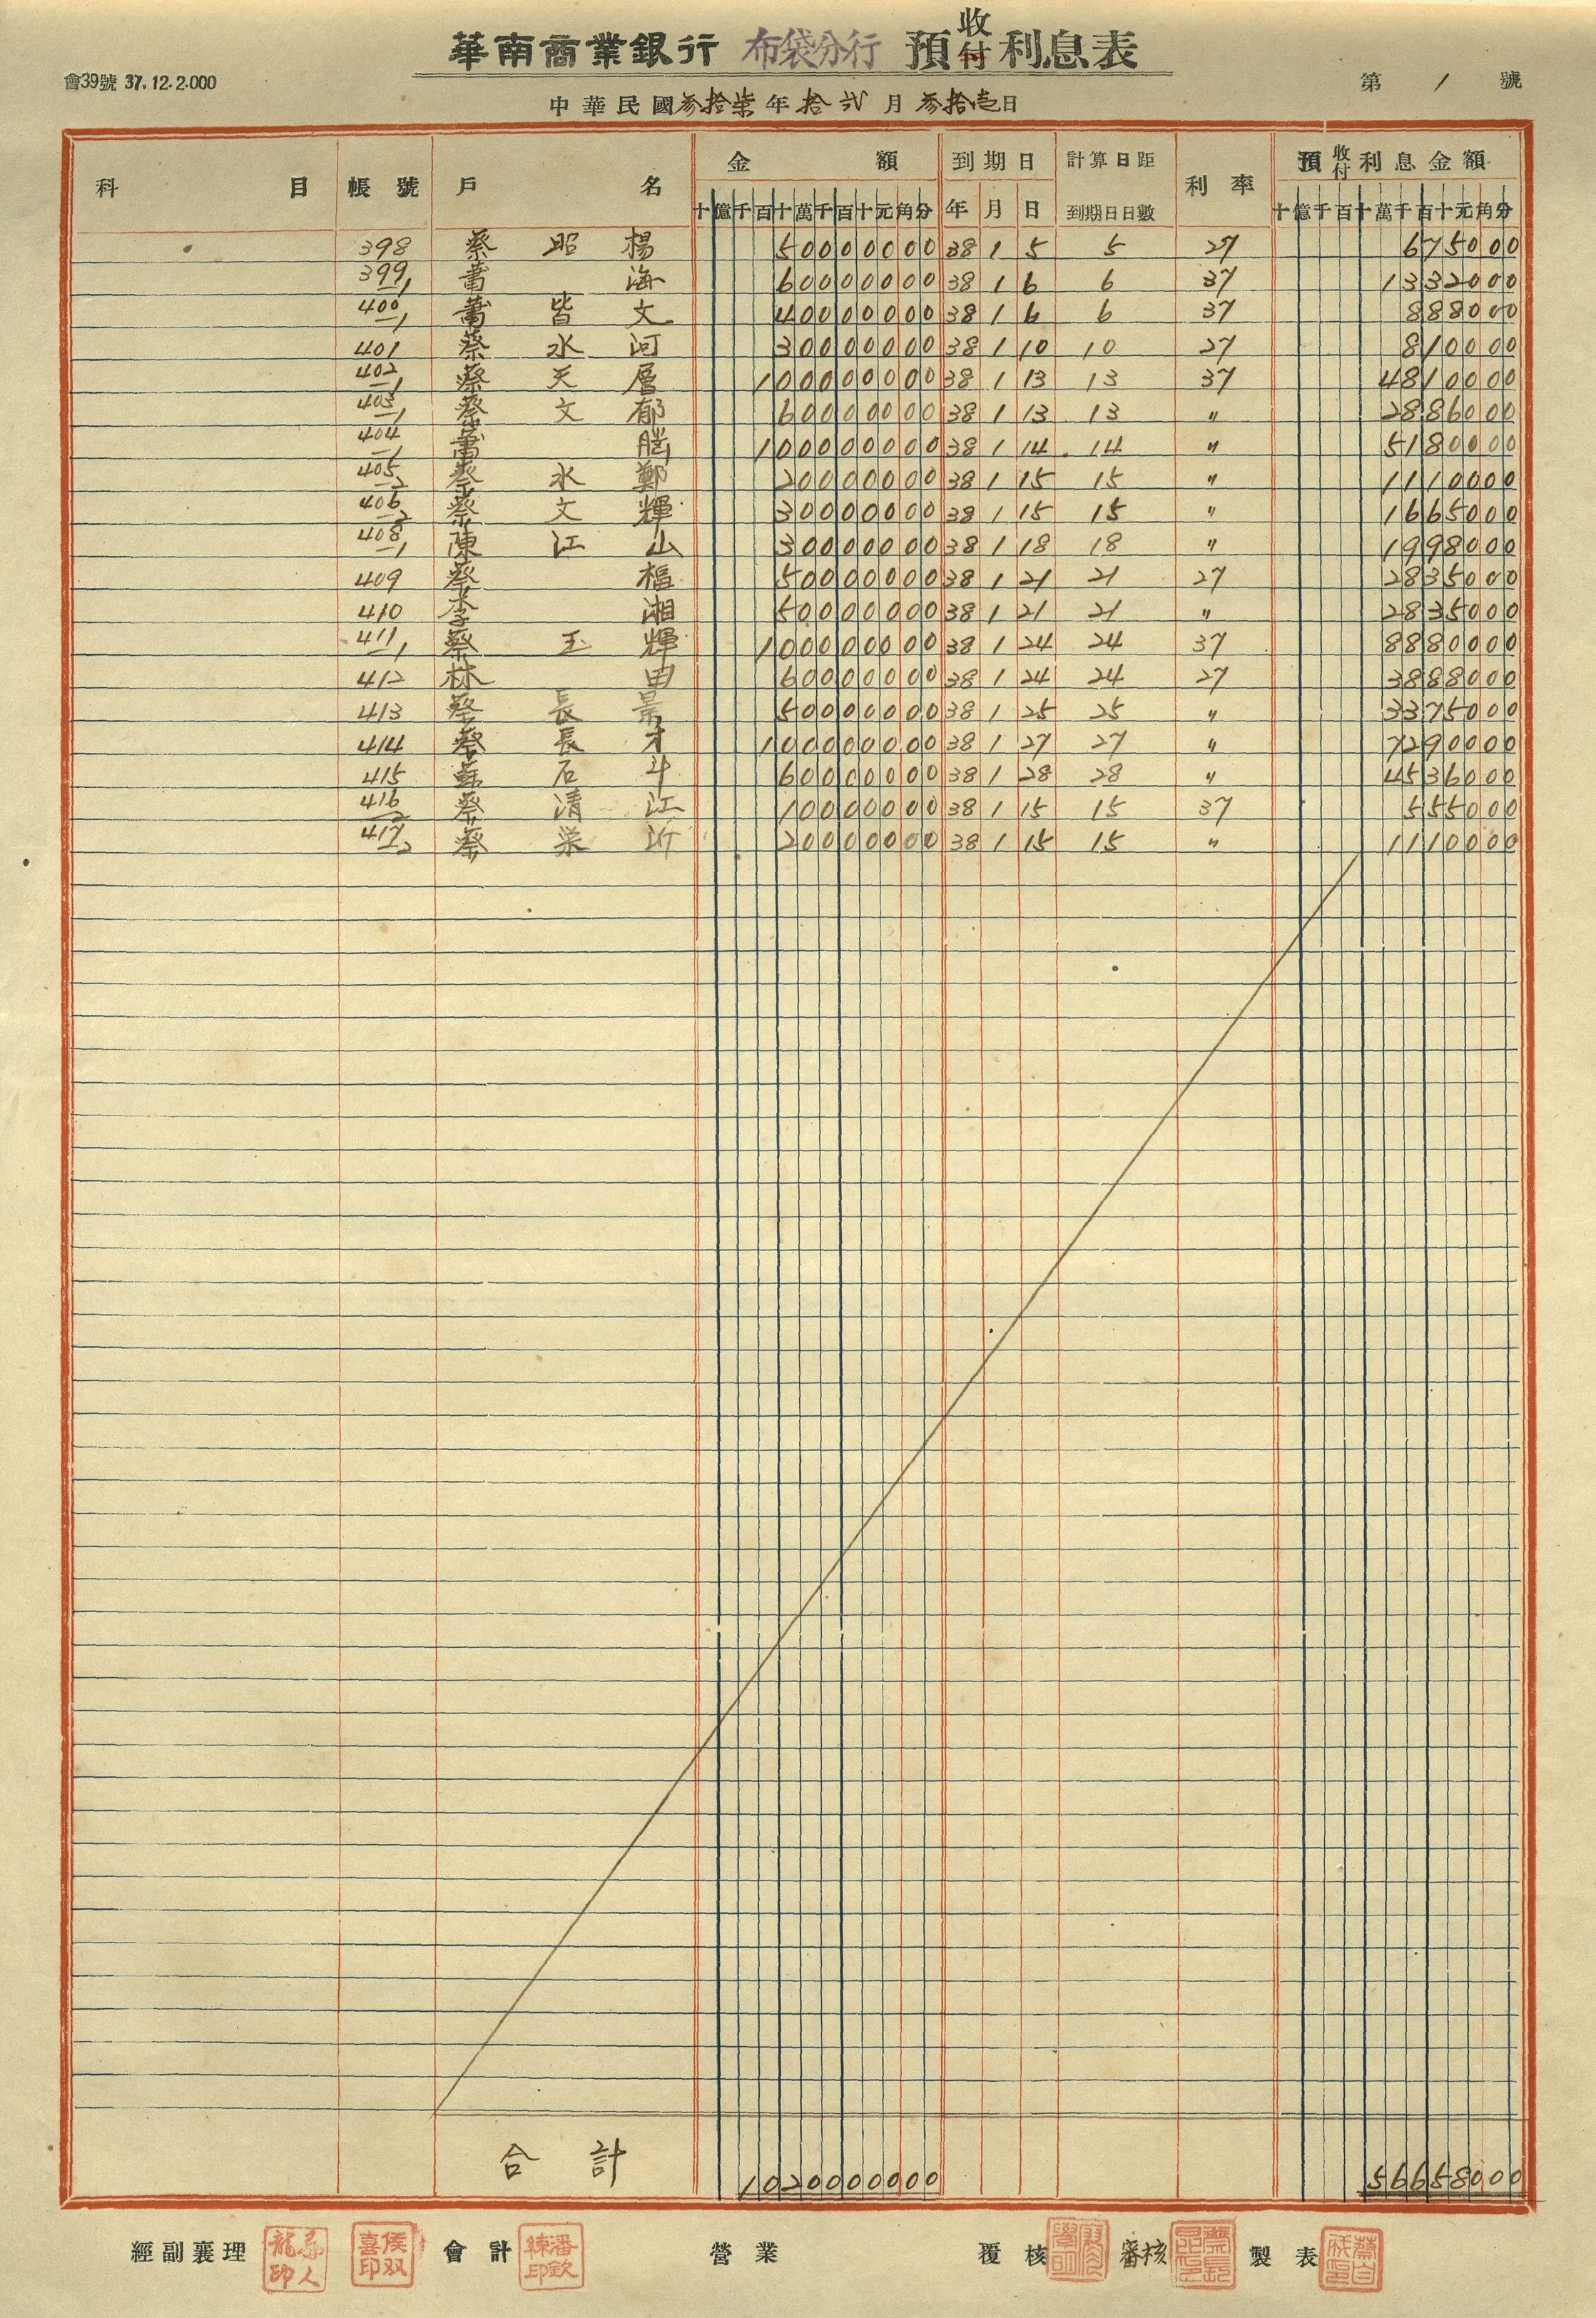 華南商業銀行 布袋分行 預收付利息表
會39號 37.12.2.000
第 1 號
中華民國叁拾柒年拾弍月叁拾壱日
科目 帳號 戶名 金額 到期日 計算日距到期日日數 利率 預收付利息金額
十億千百十萬千百十元角分 年 月 日 十億千百十萬千百十元角分
398 蔡昭楊 50000000 38 1 5 5 27 675000
399-1 蕭海 60000000 38 1 6 6 37 1332000
400-1 蕭皆文 40000000 38 1 6 6 37 888000
401 蔡水河 30000000 38 1 10 10 27 810000
402-1 蔡天層 100000000 38 1 13 13 37 4810000
403-1 蔡文郁 60000000 38 1 13 13 〃 2886000
404-1 蕭 100000000 38 1 14 14 〃 5180000
405-2 蔡水鄭 20000000 38 1 15 15 〃 1110000
406-2 蔡文輝 30000000 38 1 15 15 〃 1665000
408-1 陳江山 30000000 38 1 18 18 〃 1998000
409 蔡福 50000000 38 1 21 21 27 2835000
410 李湘 50000000 38 1 21 21 〃 2835000
411-1 蔡玉輝 100000000 38 1 24 24 37 8880000
412 林由 60000000 38 1 24 24 27 3888000
413 蔡長景 50000000 38 1 25 25 〃 3375000
414 蔡長才 100000000 38 1 27 27 〃 7290000
415 蘇石斗 60000000 38 1 28 28 〃 4536000
416-2 蔡清江 10000000 38 1 15 15 37 555000
417-2 蔡栄 20000000 38 1 15 15 〃 1110000
合計 1020000000 56658000
經副襄理 侯双喜印 會計 潘欽練印 營業 覆核 審核 製表